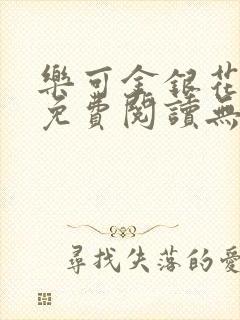 樂可金銀花
免費閱讀無
尋找失落的愛